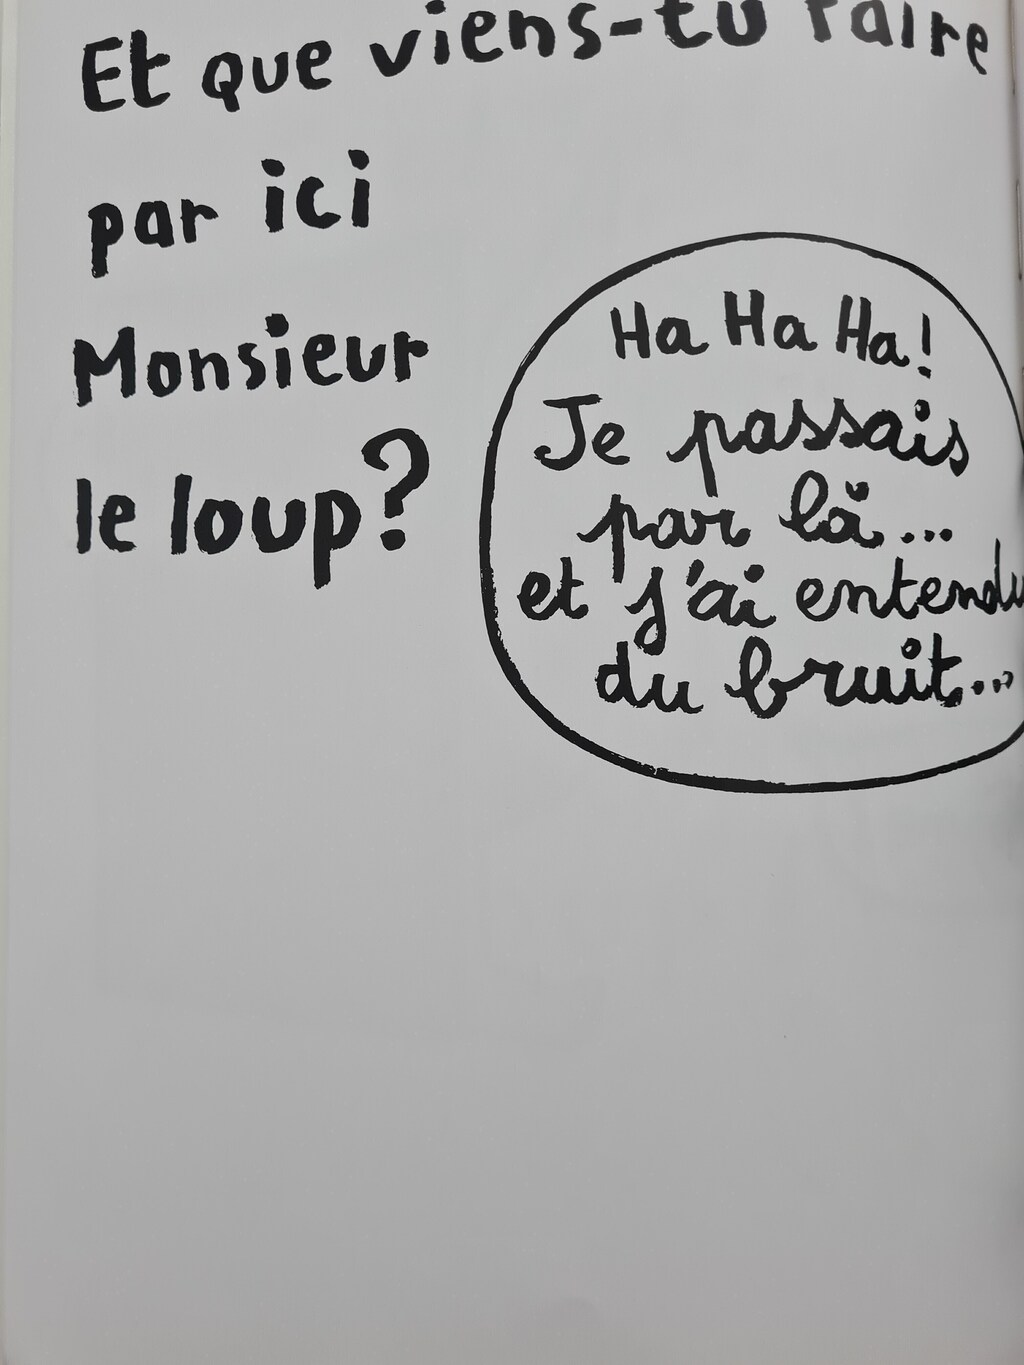 Et que viens-tu faire
par ici
Monsieur
le loup?
Ha Ha Ha!
Je passais
par là...
et j'ai entendu
du bruit...